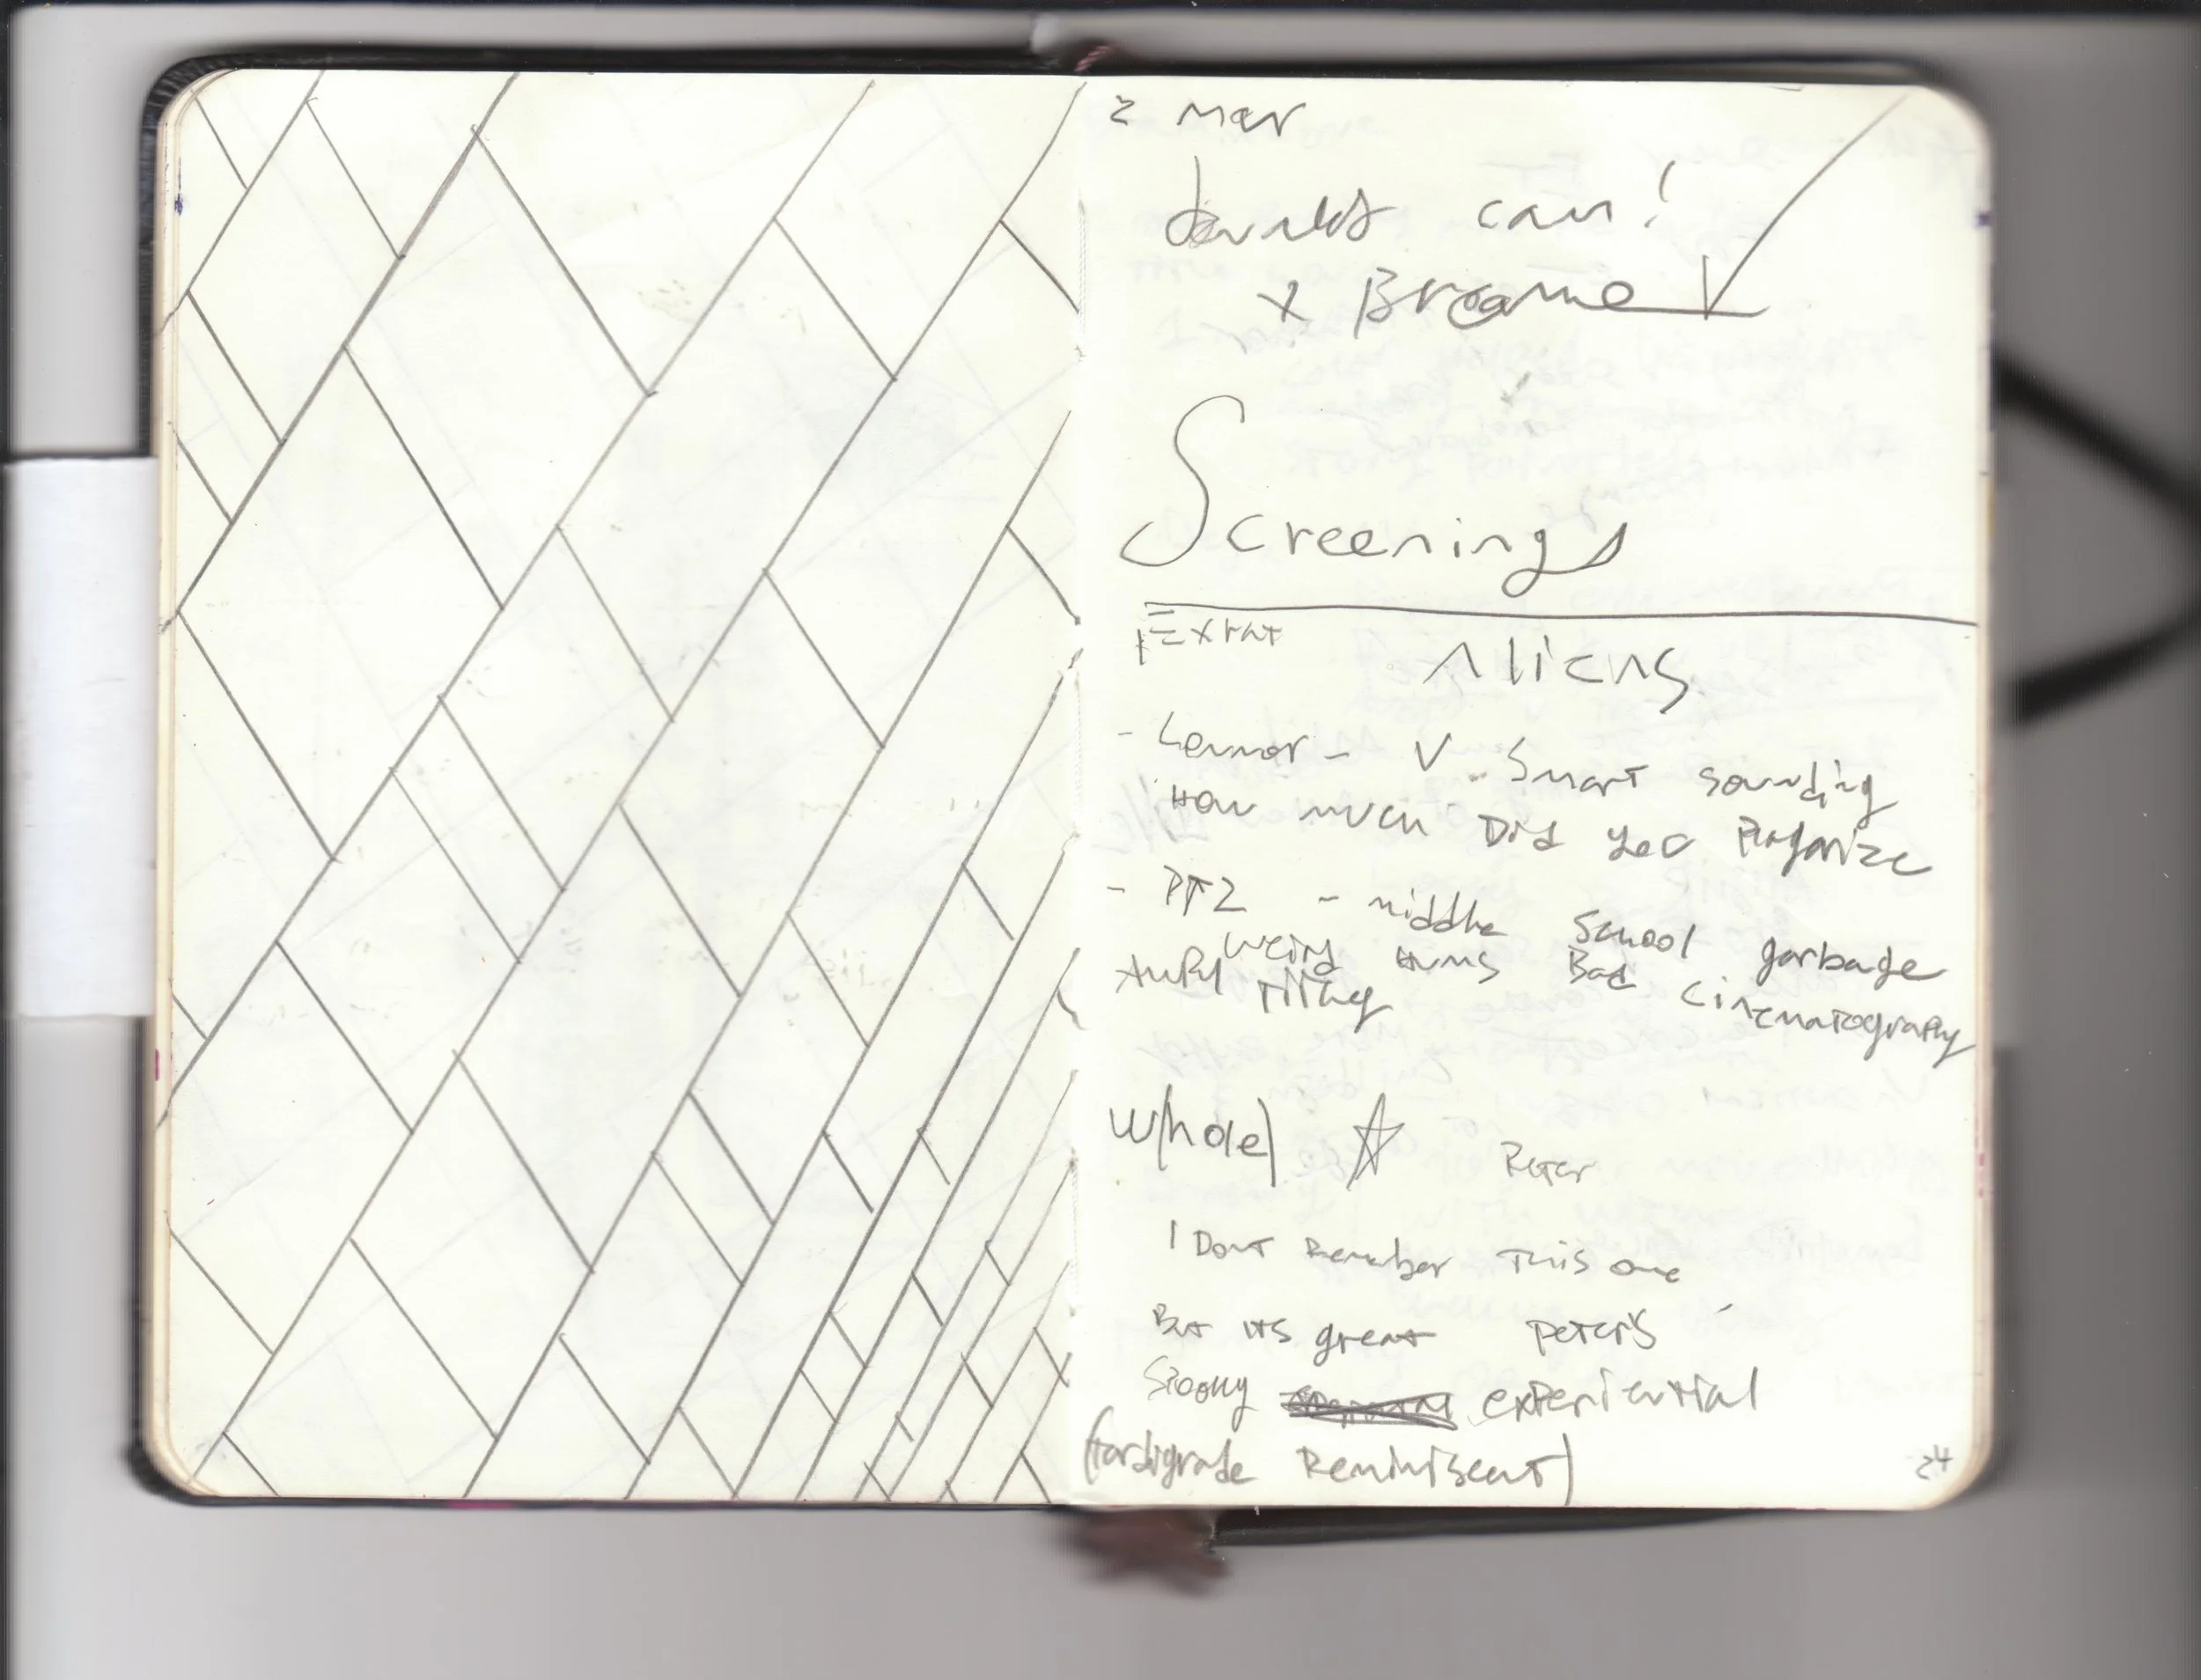 2 mar
can!
x Broome
Screenings
Extra
Aliens
- Connor - V. Smart sounding
How much Did you Plagarize
- PT2 - middle school garbage
weird Hums Bad cinematography
Awful
W(hole) Peter
I Dont Remember This one
But its great Peter's
Spooky experiential
(tardigrade Reminiscent)
24